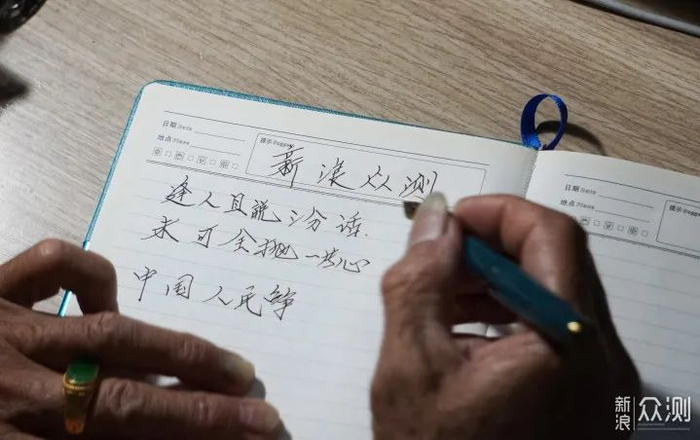 日期 Date
地点 Place
提示
新浪众测
逢人且说三分话.
未可全抛一片心
中国人民
日期 Date
地点 Place
提示
新浪 众测